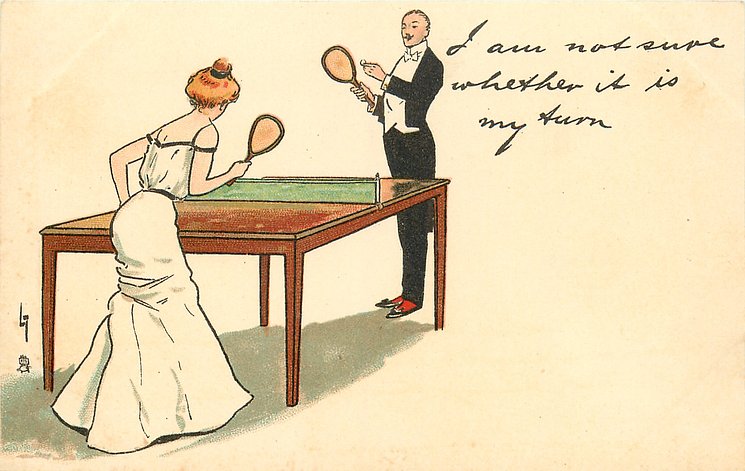 I am not sure
whether it is
my turn